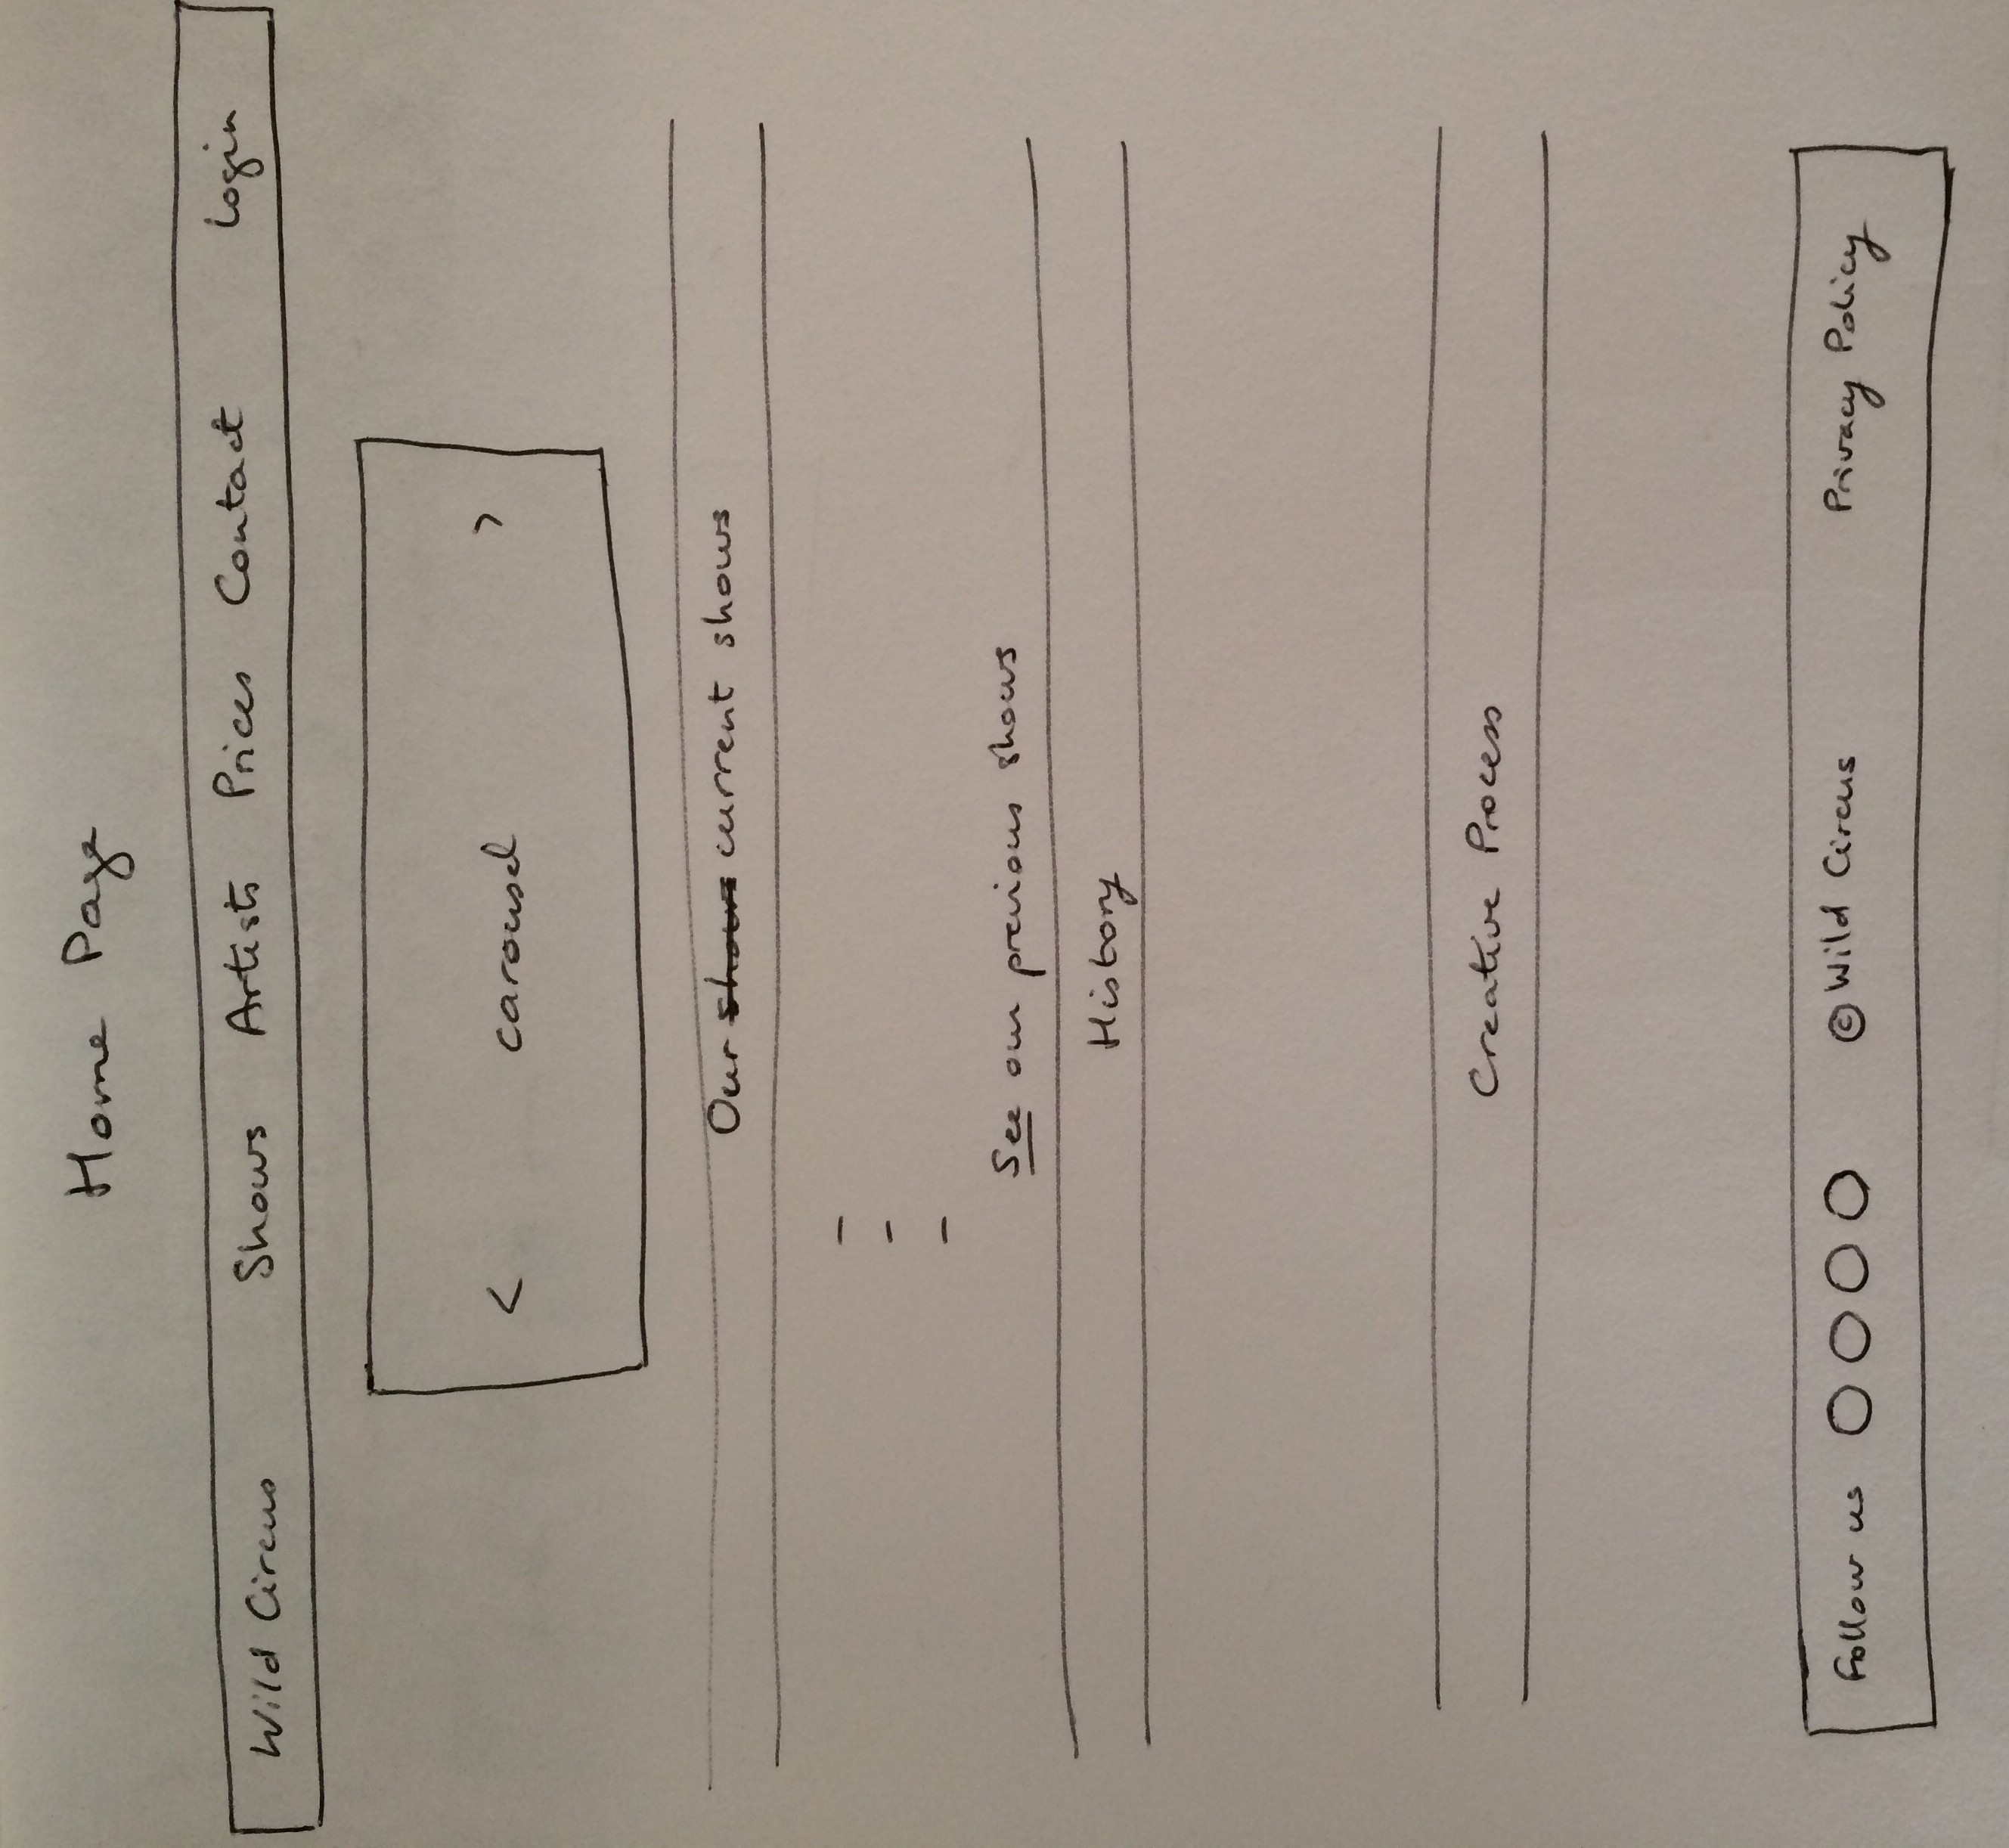 Home Page
Wild Circus Shows Artists Prices Contact Login
< carousel >
Our shows current shows
-
-
-
See our previous shows
History
Creative Process
Follow us © Wild Circus Privacy Policy